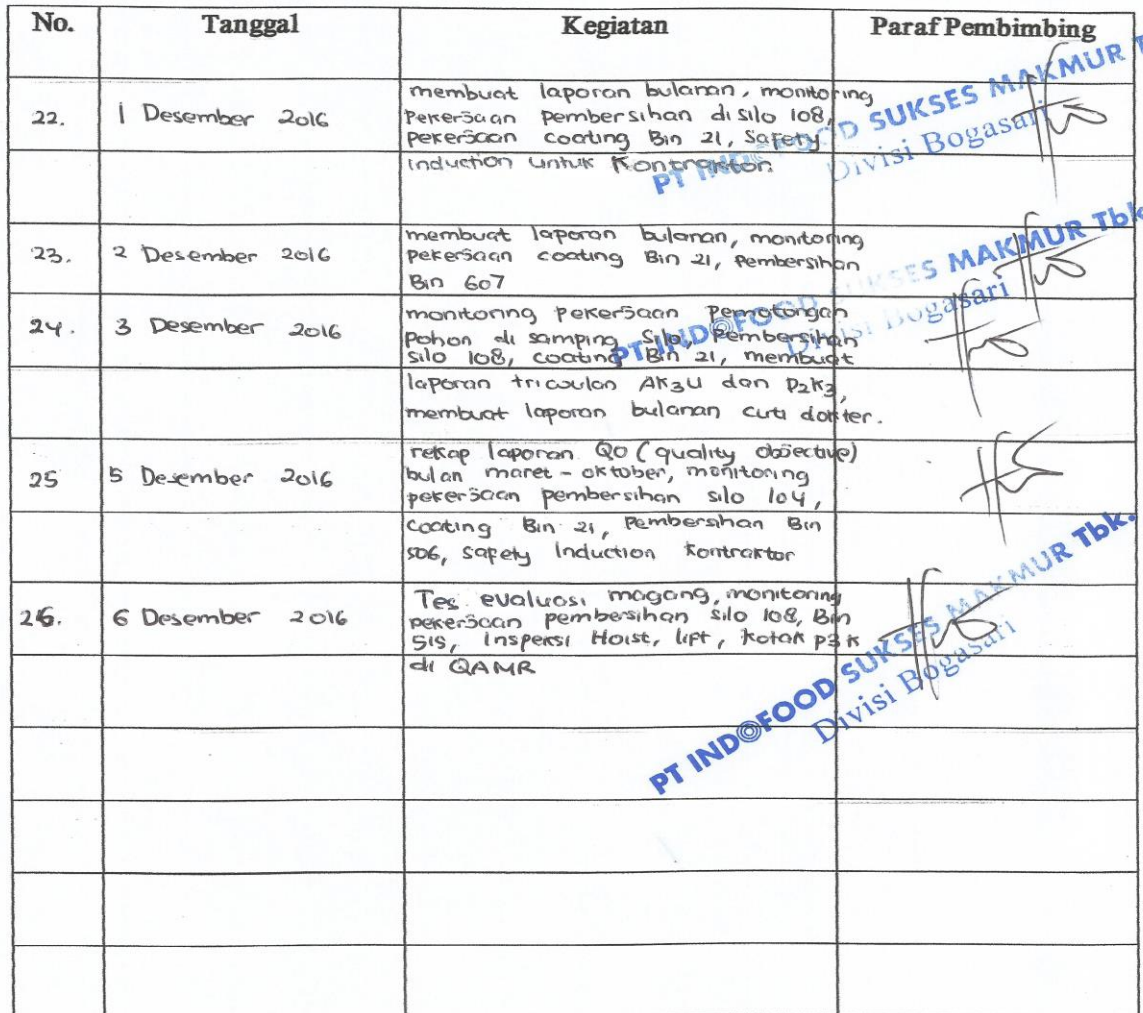 No. Tanggal Kegiatan Paraf Pembimbing
22. 1 Desember 2016
membuat laporan bulanan, monitoring
pekerjaan pembersihan di silo 108,
pekerjaan coating Bin 21, Safety
Induction untuk Kontraktor
PT INDOFOOD SUKSES MAKMUR T
Divisi Bogasari
23. 2 Desember 2016
membuat laporan bulanan, monitoring
pekerjaan coating Bin 21, pembersihan
Bin 607
24. 3 Desember 2016
monitoring pekerjaan pemotongan
pohon di samping silo, pembersihan
silo 108, coating Bin 21, membuat
laporan tricwulan AK3U dan P2K3,
membuat laporan bulanan cuti dokter.
PT INDOFOOD SUKSES MAKMUR Tbk
Divisi Bogasari
25 5 Desember 2016
rekap laporan QO (quality objective)
bulan maret - oktober, monitoring
pekerjaan pembersihan silo 104,
coating Bin 21, Pembersihan Bin
506, Safety Induction kontraktor
26. 6 Desember 2016
Tes evaluasi magang, monitoring
pekerjaan pembersihan silo 108, Bin
515, Inspeksi Hoist, lift, kotak p3k
di QAMR
PT INDOFOOD SUKSES MAKMUR Tbk.
Divisi Bogasari